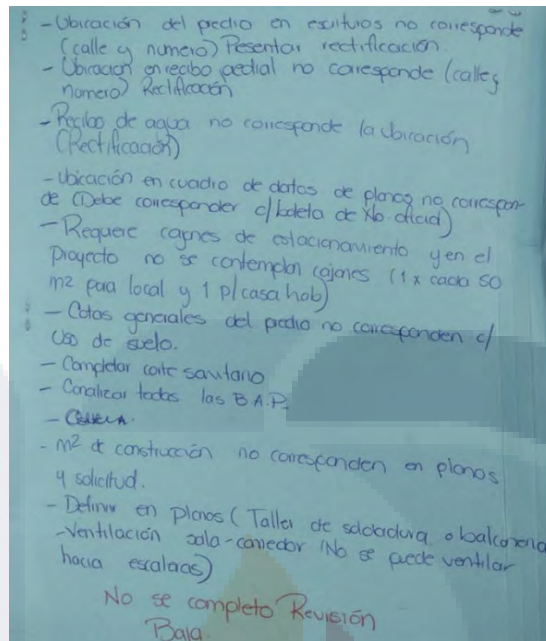 - Ubicación del predio en escrituras no corresponde
(calle y numero) Pesentar rectificación.
- Ubicación en recibo pedial no coresponde (calle y
numero) Rectificación
- Recibo de agua no corresponde la ubicación
(Rectificación)
- Ubicación en cuadro de datos de planos no correspon-
de (Debe corresponder c/boleta de No. oficial)
- Requiere cajones de estacionamiento y en el
Proyecto no se contemplan cajones (1 x cada 50
m2 para local y 1 p/casa hab)
- Cotas generales del predio no corresponden c/
Uso de suelo.
- Completar corte sanitario
- Canalizar todas las B.A.P.
-
- m2 de construcción no corresponden en planos
y solicitud.
- Definir en planos (Taller de soldadura o balconeria
- Ventilación sala-comedor (No se puede ventilar
hacia escaleras)
No se completo Revisión
Baja.